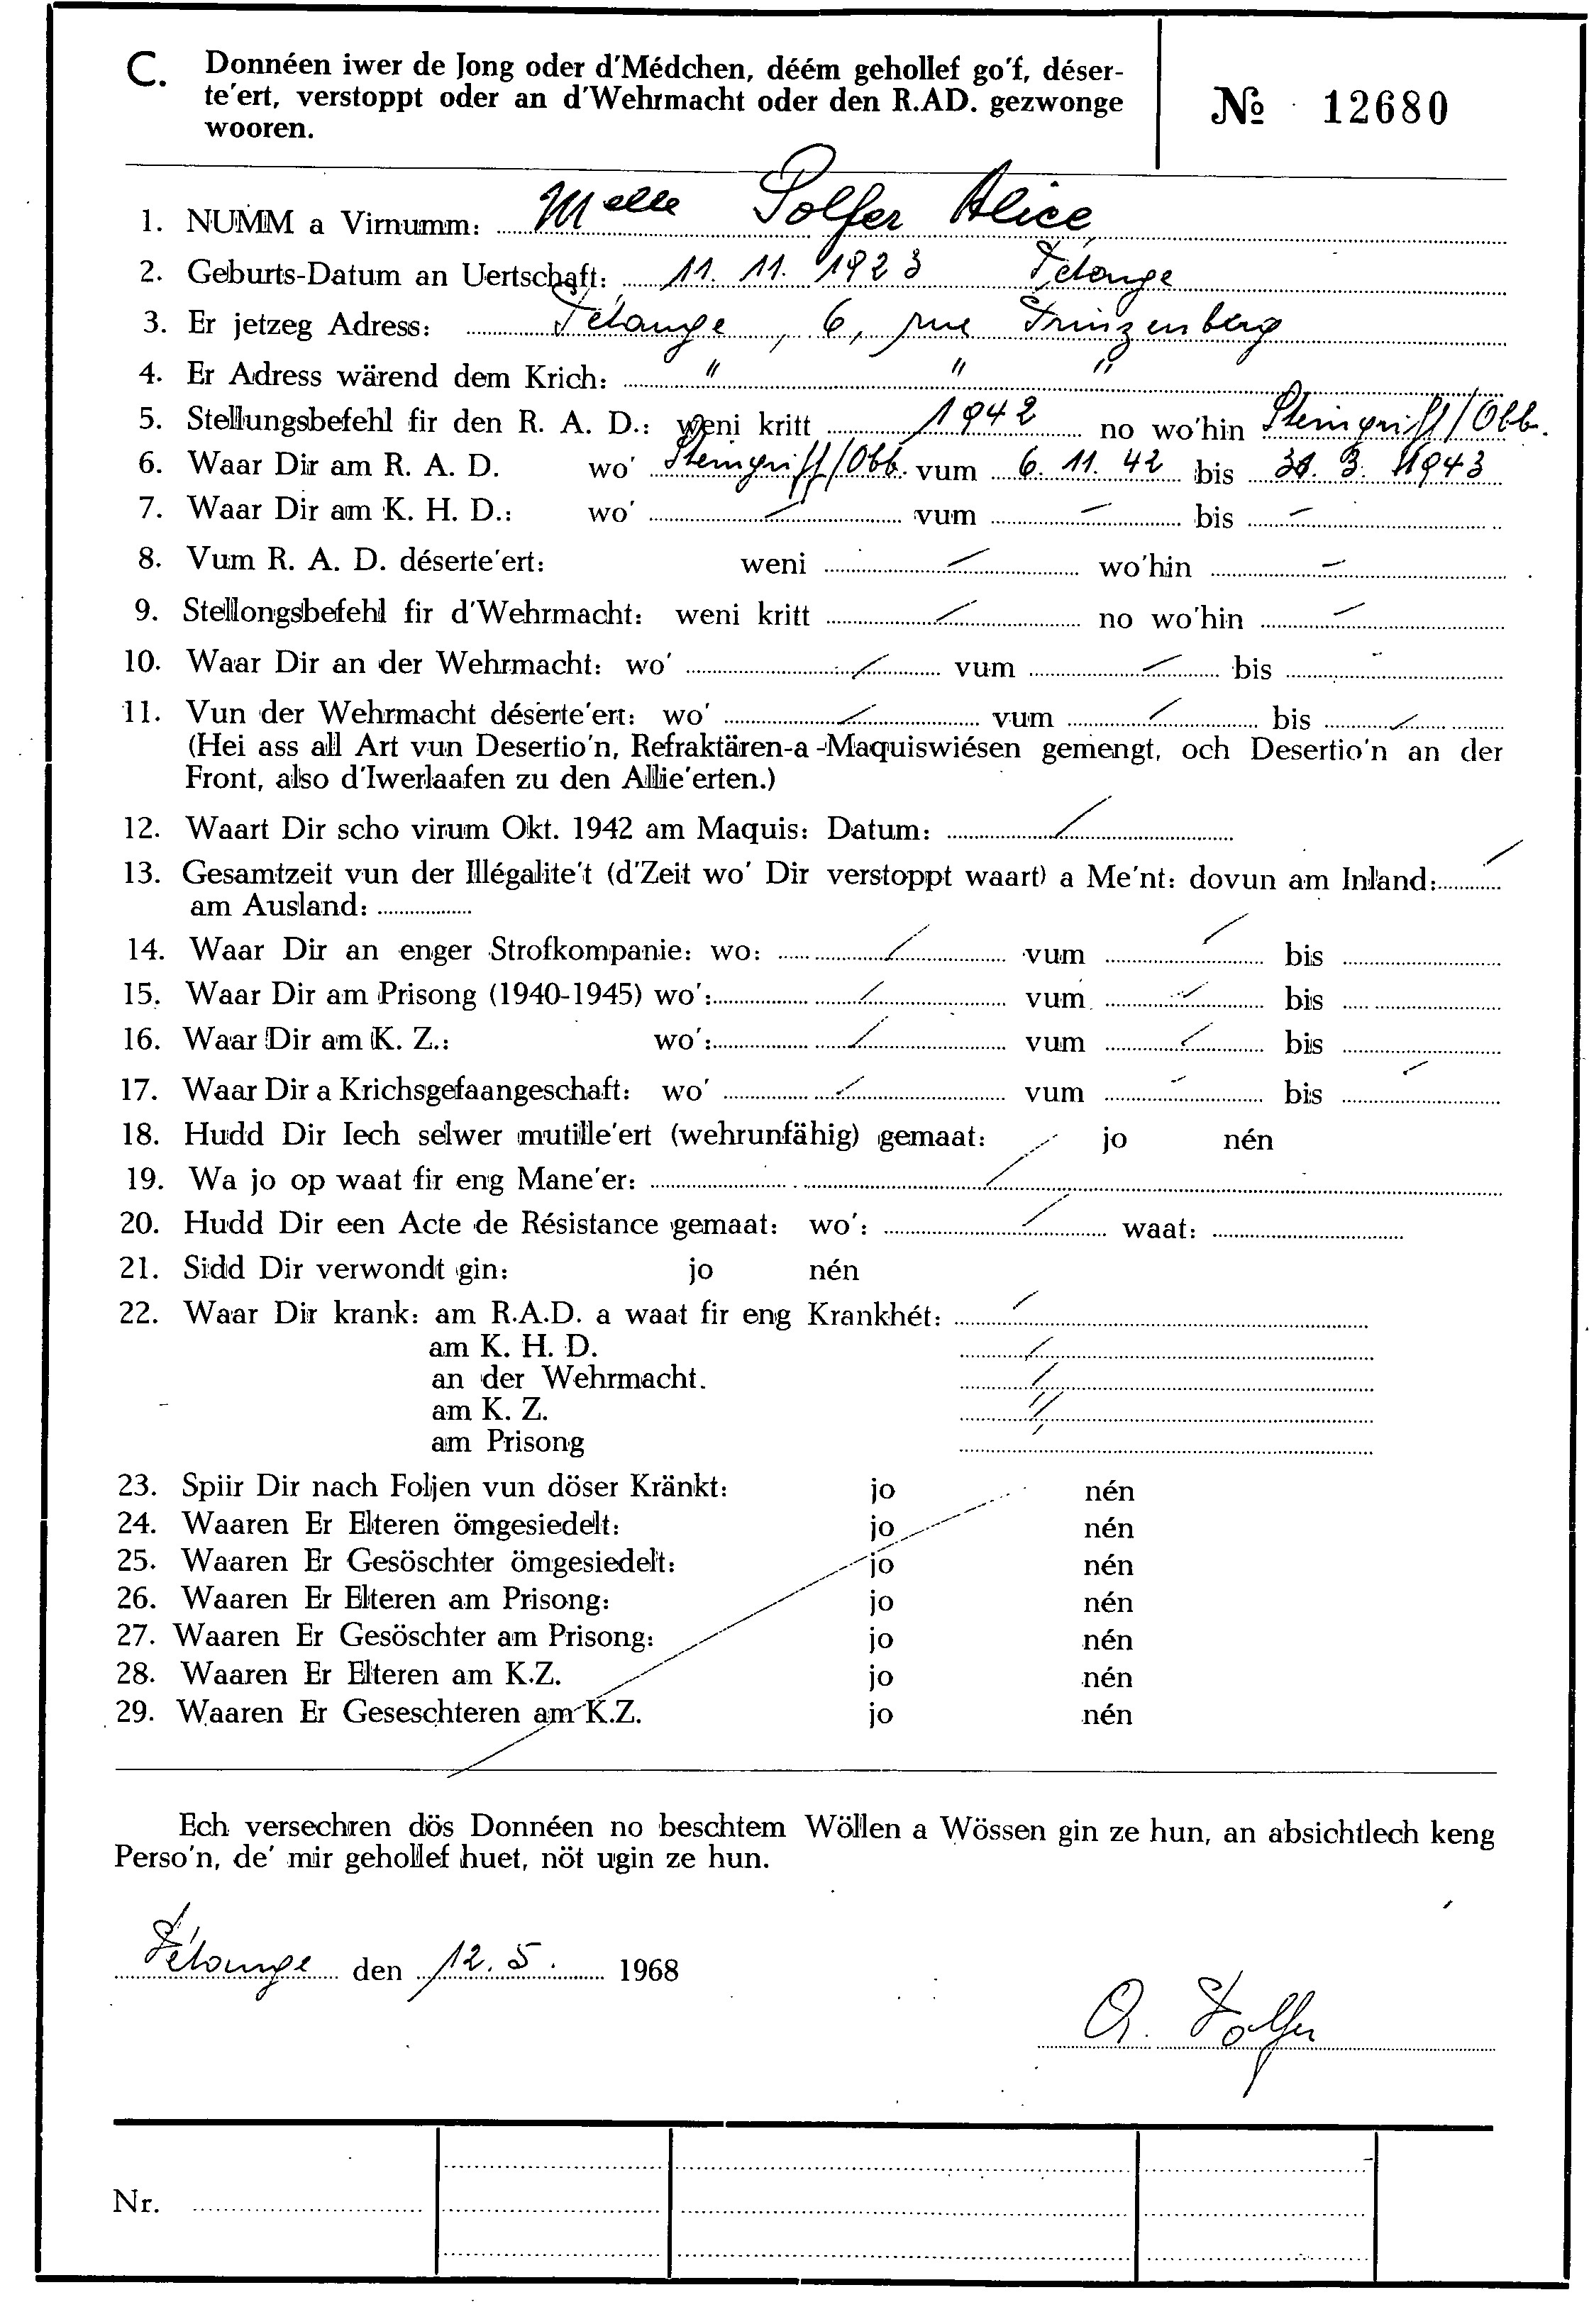 C. Donnéen iwer de Jong oder d'Médchen, déém gehollef go'f, déser-
te'ert, verstoppt oder an d'Wehrmacht oder den R.AD. gezwonge
wooren.
№ 12680
1. NUMM a Virnumm: Melle Polfer Alice
2. Geburts-Datum an Uertschaft: 11. 11. 1923 Pétange
3. Er jetzeg Adress: Pétange, 6, rue Prinzenberg
4. Er Adress wärend dem Krich: " " "
5. Stellungsbefehl fir den R. A. D.: weni kritt 1942 no wo'hin Steingriff/Obb.
6. Waar Dir am R. A. D. wo' Steingriff/Obb. vum 6. 11. 42 bis 31. 3. 1943
7. Waar Dir am K. H. D.: wo' – vum – bis –
8. Vum R. A. D. déserte'ert: weni – wo'hin –
9. Stellongsbefehl fir d'Wehrmacht: weni kritt – no wo'hin –
10. Waar Dir an der Wehrmacht: wo' – vum – bis -
11. Vun der Wehrmacht déserte'ert: wo' – vum – bis –
(Hei ass all Art vun Desertio'n, Refraktären-a-Maquiswiésen gemengt, och Desertio'n an der
Front, also d'Iwerlaafen zu den Allie'erten.)
12. Waart Dir scho virum Okt. 1942 am Maquis: Datum: /
13. Gesamtzeit vun der Illégalite't (d'Zeit wo' Dir verstoppt waart) a Me'nt: dovun am Inland: /
am Ausland:
14. Waar Dir an enger Strofkompanie: wo: / vum / bis
15. Waar Dir am Prisong (1940-1945) wo': / vum / bis
16. Waar Dir am K. Z.: wo': / vum / bis
17. Waar Dir a Krichsgefaangeschaft: wo' / vum – bis –
18. Hudd Dir Iech selwer mutille'ert (wehrunfähig) gemaat: / jo nén
19. Wa jo op waat fir eng Mane'er: /
20. Hudd Dir een Acte de Résistance gemaat: wo': / waat:
21. Sidd Dir verwondt gin: jo nén
22. Waar Dir krank: am R.A.D. a waat fir eng Krankhét: /
am K. H. D. /
an der Wehrmacht. /
am K. Z. //
am Prisong /
23. Spiir Dir nach Foljen vun döser Kränkt: jo nén
24. Waaren Er Elteren ömgesiedelt: jo nén
25. Waaren Er Gesöschter ömgesiedelt: jo nén
26. Waaren Er Elteren am Prisong: jo nén
27. Waaren Er Gesöschter am Prisong: jo nén
28. Waaren Er Elteren am K.Z. jo nén
29. Waaren Er Geseschteren am K.Z. jo nén
Ech versechren dös Donnéen no beschtem Wöllen a Wössen gin ze hun, an absichtlech keng
Perso'n, de' mir gehollef huet, nöt ugin ze hun.
Pétange den 12. 5. 1968
A. Polfer
Nr.